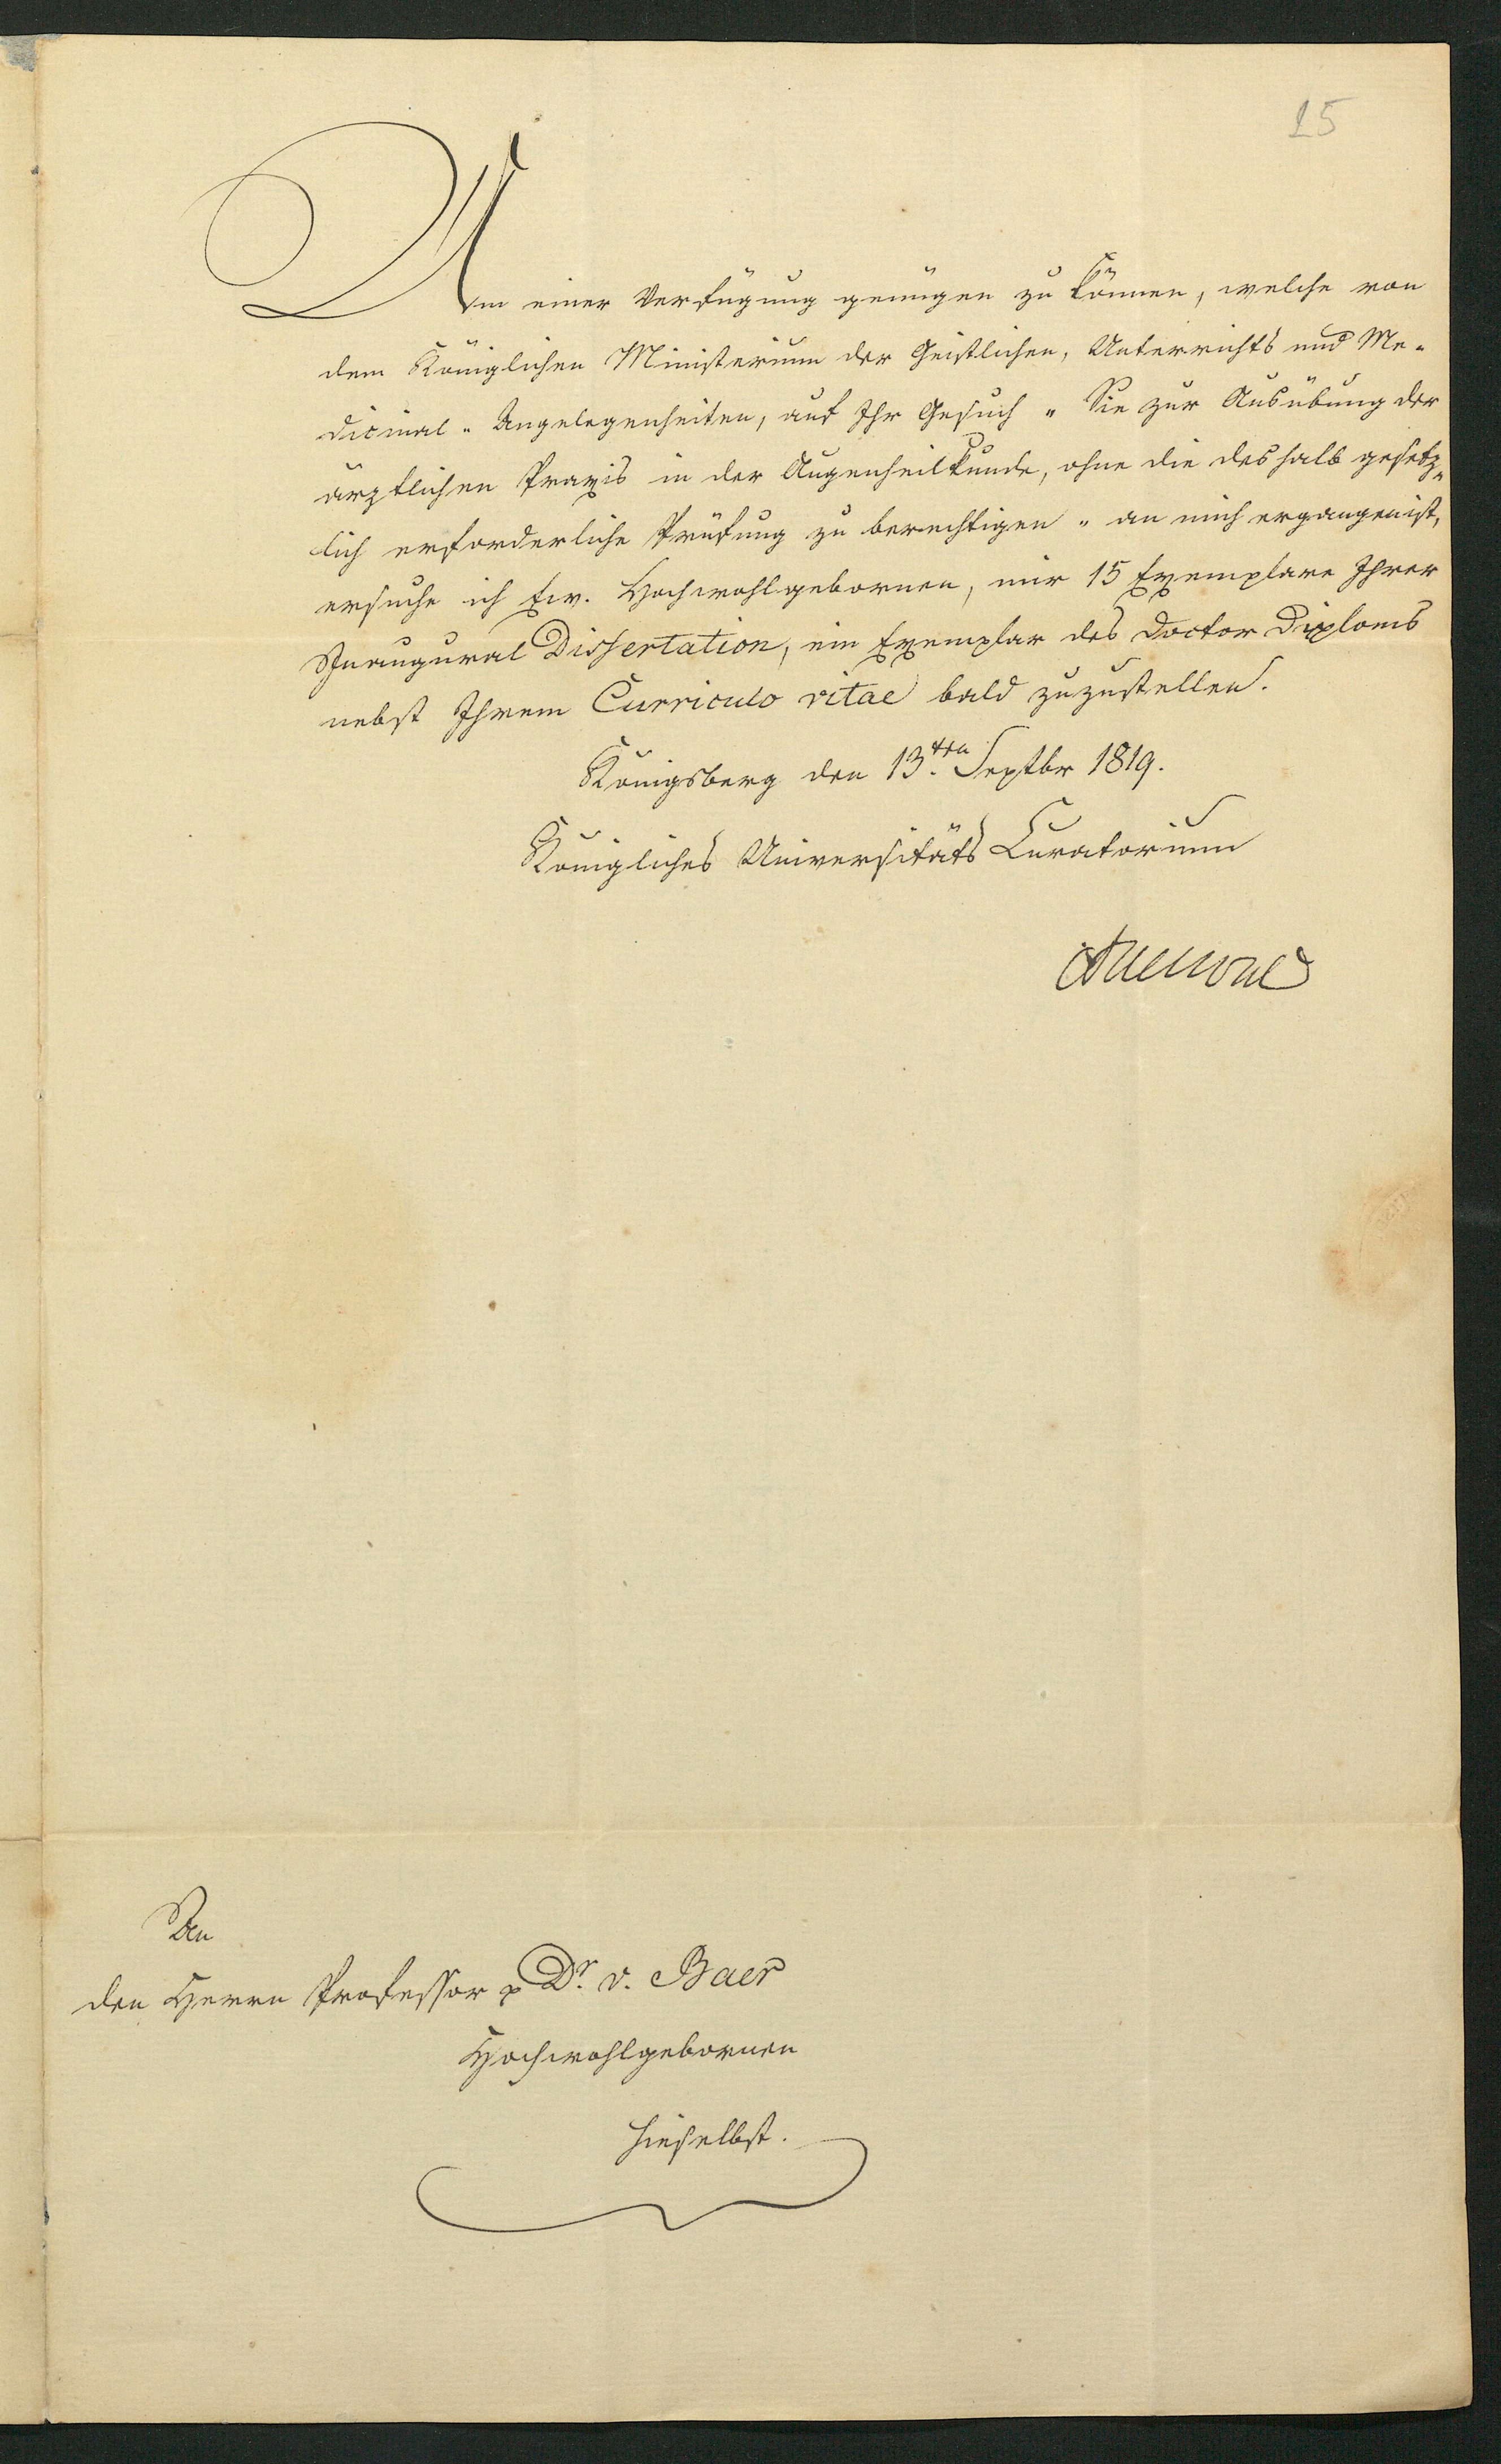 25
Um einer Verfügung genügen zu können, welche von
dem Königlichen Ministerium der Geistlichen, Unterrichts und Me-
dicinal-Angelegenheiten, auf Ihr Gesuch „Sie zur Ausübung der
ärztlichen Praxis in der Augenheilkunde, ohne die deshalb gesetz-
lich erforderliche Prüfung zu berechtigen" an mich ergangen ist,
ersuche ich Ew. Hochwohlgebornen, mir 15 Exemplare Ihrer
Inaugural Dissertation, ein Exemplar des Doctor Diploms
nebst Ihrem Curriculo vitae bald zuzustellen.
Königsberg den 13.ten Septbr 1819.
Königliches Universitäts Curatorium
An
den Herrn Professor p Dr. v. Baer
Hochwohlgebornen
hieselbst.